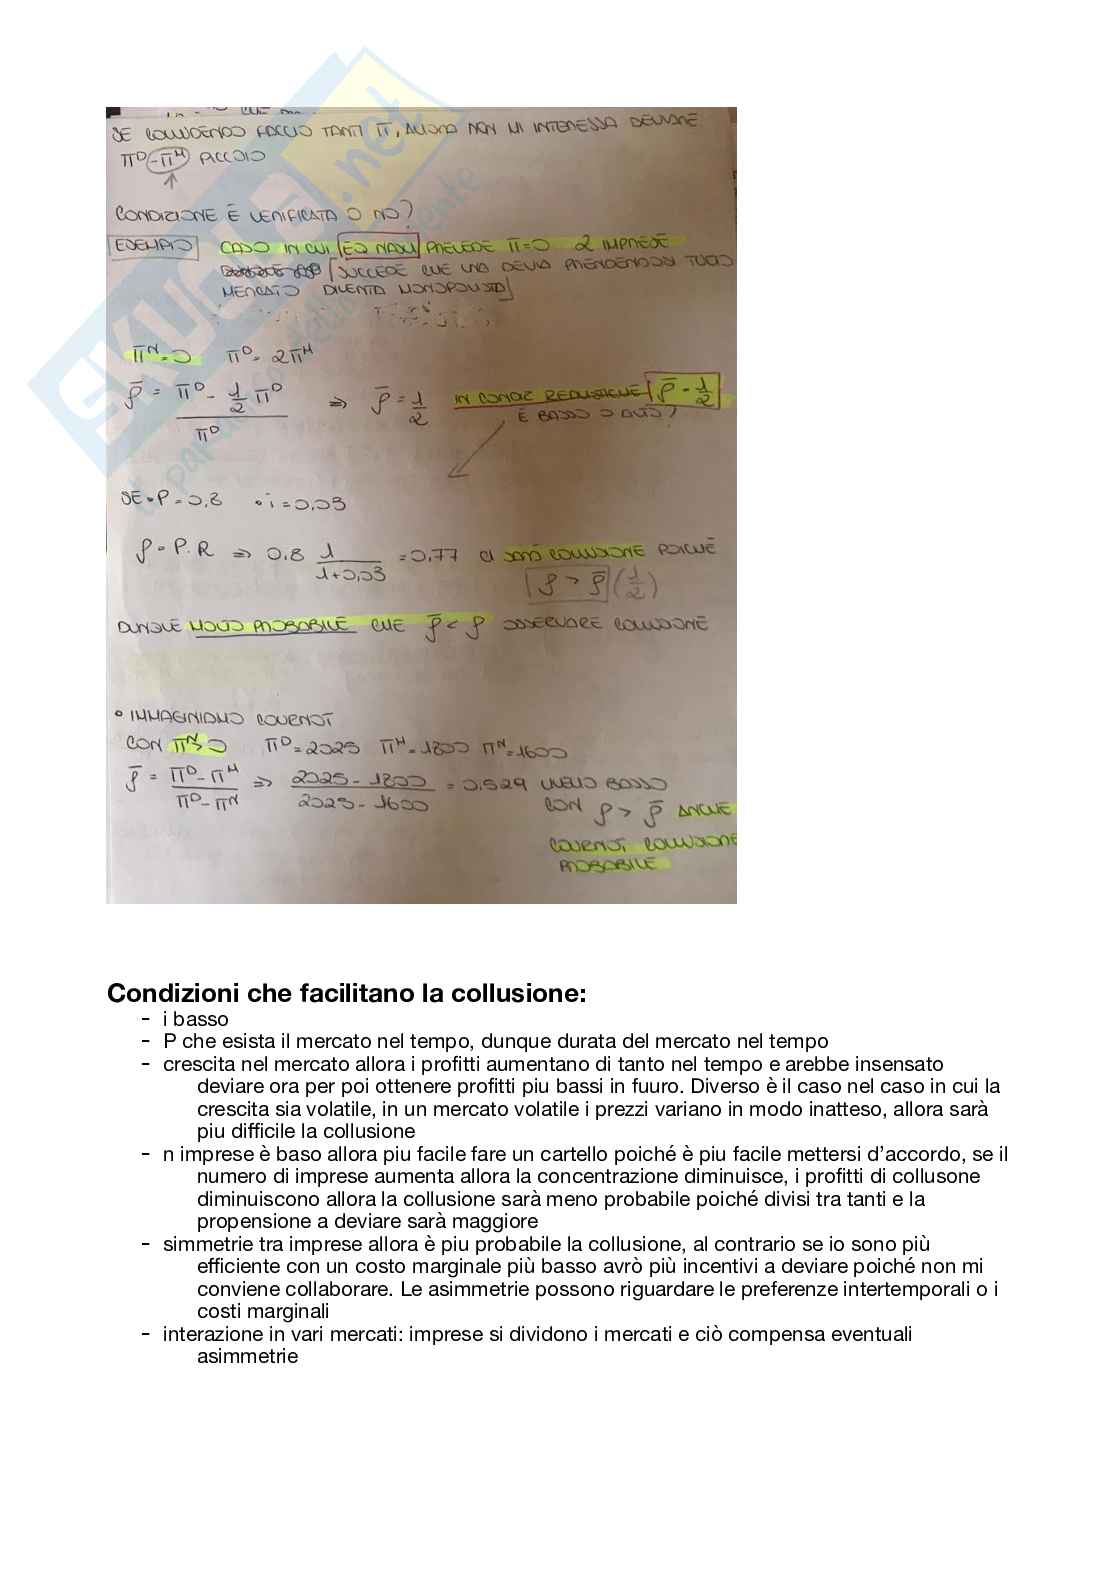 SE COLLUDENDO FACCIO TANTI π, ALLORA NON MI INTERESSA DEVIARE
πᴰ-πᴹ PICCOLO
CONDIZIONE È VERIFICATA O NO?
ESEMPIO CASO IN CUI EQ NASH PREVEDE π=0 2 IMPRESE
SUCCEDE CHE UNA DEVIA PRENDENDOSI TUTTO
MERCATO DIVENTA MONOPOLISTA
πᴺ=0 πᴰ= 2πᴹ
ρ̄ = πᴰ - 1/2 πᴰ / πᴰ ⇒ ρ̄ = 1/2 IN CONDIZ REALISTICHE ρ̄ = 1/2
È BASSO O ALTO?
SE • P = 0,8 • i = 0,03
ρ = P·R ⇒ 0,8 1/1+0,03 = 0,77 CI SARÀ COLLUSIONE POICHÈ
ρ > ρ̄ (1/2)
DUNQUE MOLTO PROBABILE CHE ρ̄ < ρ OSSERVARE COLLUSIONE
• IMMAGINIAMO COURNOT
CON πᴺ>0 πᴰ=2025 πᴹ=1800 πᴺ=1600
ρ̄ = πᴰ-πᴹ / πᴰ-πᴺ ⇒ 2025-1800 / 2025-1600 = 0,529 LIVELLO BASSO
CON ρ > ρ̄ ANCHE
COURNOT COLLUSIONE
PROBABILE
SKUOLA.net
Condizioni che facilitano la collusione:
- i basso
- P che esista il mercato nel tempo, dunque durata del mercato nel tempo
- crescita nel mercato allora i profitti aumentano di tanto nel tempo e arebbe insensato
deviare ora per poi ottenere profitti piu bassi in fuuro. Diverso è il caso nel caso in cui la
crescita sia volatile, in un mercato volatile i prezzi variano in modo inatteso, allora sarà
piu difficile la collusione
- n imprese è baso allora piu facile fare un cartello poiché è piu facile mettersi d'accordo, se il
numero di imprese aumenta allora la concentrazione diminuisce, i profitti di collusone
diminuiscono allora la collusione sarà meno probabile poiché divisi tra tanti e la
propensione a deviare sarà maggiore
- simmetrie tra imprese allora è piu probabile la collusione, al contrario se io sono più
efficiente con un costo marginale più basso avrò più incentivi a deviare poiché non mi
conviene collaborare. Le asimmetrie possono riguardare le preferenze intertemporali o i
costi marginali
- interazione in vari mercati: imprese si dividono i mercati e ciò compensa eventuali
asimmetrie